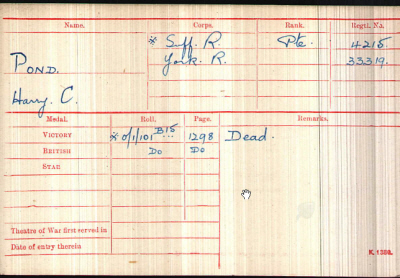 Name. Corps. Rank. Regtl. No.
* Suff. R. Pte. 4215.
POND. York. R. 33319.
Harry. C.
Medal. Roll. Page. Remarks.
VICTORY * O/1/101 B15 ... 1298 Dead.
BRITISH Do Do
STAR
Theatre of War first served in
Date of entry therein
K. 1380.